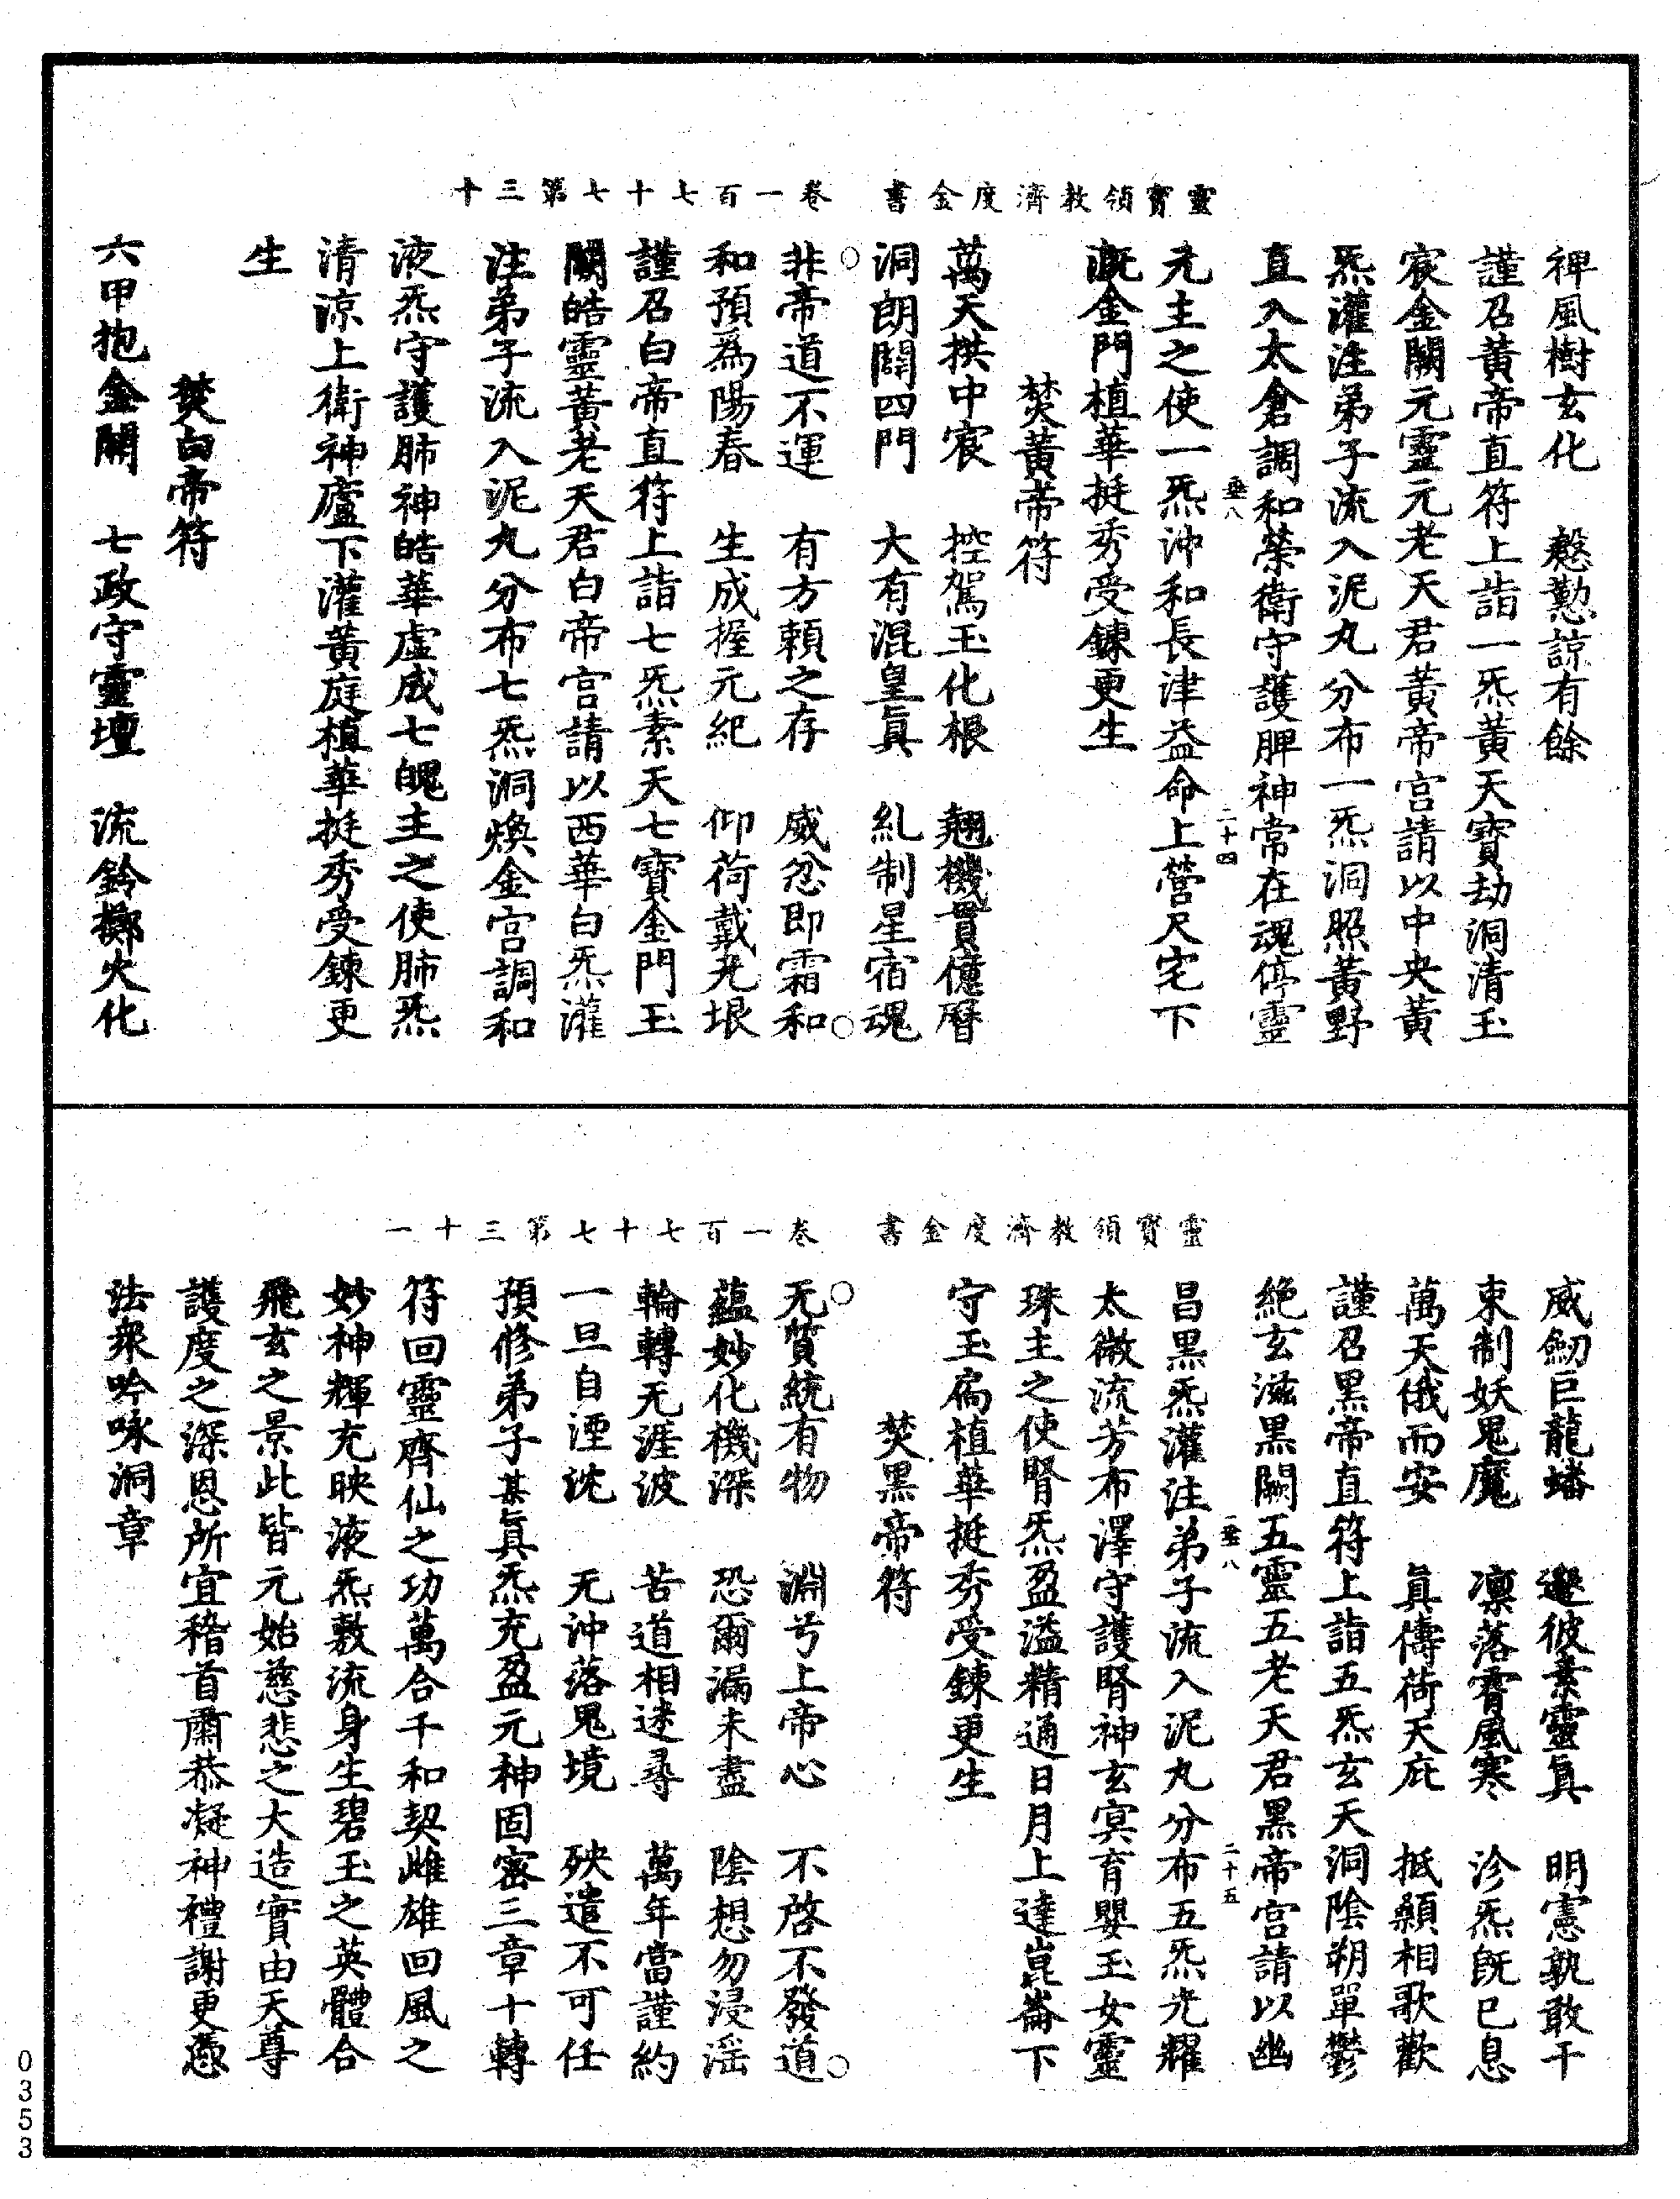 靈寶領教濟度金書　卷一百七十七第三十
禆風樹玄化　慇懃諒有餘
謹召黃帝直符上詣一炁黃天寶劫洞清玉
宸金闕元靈元老天君黃帝宫請以中央黃
炁灌注弟子流入泥丸分布一炁洞照黃野
直入太倉調和榮衛守護脾神常在魂停靈
垂八　二十四
元主之使一炁沖和長津益命上營尺宅下
溉金門植華挺秀受鍊更生
焚黃帝符
萬天拱中宸　控駕玉化根　翹機貫億曆
洞朗闢四門　大有混皇真　糺制星宿魂
非帝道不運　有方賴之存　威忿即霜和
和預爲陽春　生成握元紀　仰荷戴无垠
謹召白帝直符上詣七炁素天七寶金門玉
闕皓靈黃老天君白帝宫請以西華白炁灌
注弟子流入泥丸分布七炁洞煥金宫調和
液炁守護肺神皓華虚成七魄主之使肺炁
清涼上衛神廬下灌黃庭植華挺秀受鍊更
生
焚白帝符
六甲抱金關　七政守靈壇　流鈴擲火化
靈寶領教濟度金書　卷一百七十七第三十一
威劒巨龍蟠　邈彼素靈真　明憲孰敢干
束制妖鬼魔　凛落霄風寒　沴炁旣已息
萬天俄而安　真儔荷天庇　抵顙相歌歡
謹召黑帝直符上詣五炁玄天洞陰朔單鬱
絶玄滋黑闕五靈五老天君黑帝宫請以幽
垂八　二十五
昌黑炁灌注弟子流入泥丸分布五炁光耀
太微流芳布澤守護腎神玄冥育嬰玉女靈
珠主之使腎炁盈溢精通日月上達崑崙下
守玉扄植華挺秀受鍊更生
焚黑帝符
无質統有物　淵兮上帝心　不啓不發道
蘊妙化機深　恐爾漏未盡　陰想勿浸滛
輪轉无涯波　苦道相逑尋　萬年當謹約
一旦自湮沈　无沖落鬼境　殃遣不可任
預修弟子某真炁充盈元神固密三章十轉
符回靈齊仙之功萬合千和契雌雄回風之
妙神輝充映液炁敷流身生碧玉之英體合
飛玄之景此皆元始慈悲之大造實由天尊
護度之深恩所宜稽首肅恭凝神禮謝更憑
法衆吟咏洞章
0353